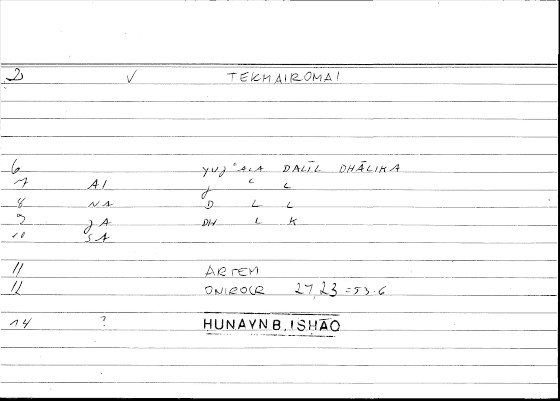 2 V TEKMAIROMAI
6 YUJ'ALA DALĪL DHĀLIKA
7 AI J L L
8 NA D L L
9 JA DH L K
10 SA
11 ARTEM
12 ONIROCR 27,23 = 53.6
14 ? HUNAYN B. ISHĀQ